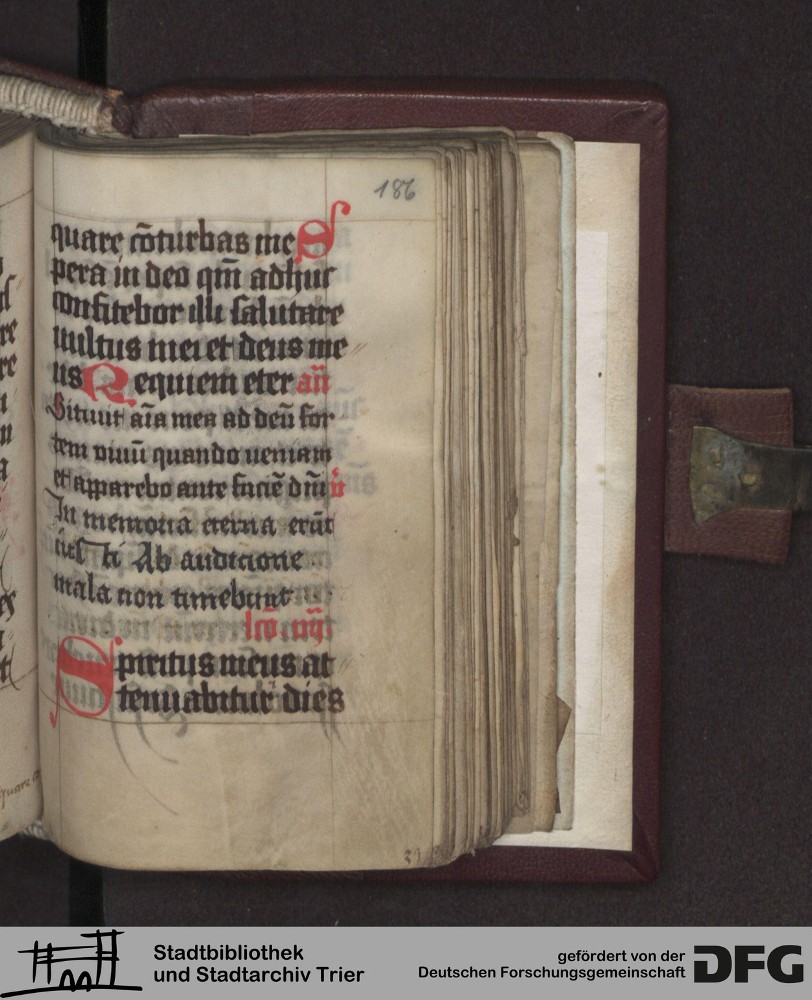 186
quare cōturbas me S
pera in deo qm̄ adhuc
confitebor illi salutare
uultus mei et deus me
us Requiem eter an̄
Sitiuit aīa mea ad deū for
tem uiuū quando ueniam
et apparebo ante faciē dn̄i ṽ
In memoria eterna erūt
iusti Ab audicione
mala non timebunt
lcō. iiij.
Spiritus meus at
tenuabitur dies
Stadtbibliothek
und Stadtarchiv Trier
gefördert von der
Deutschen Forschungsgemeinschaft
DFG